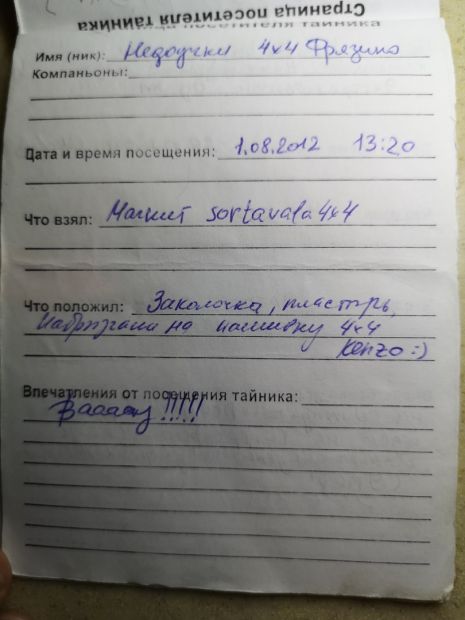 Страница посетителя тайника
Имя (ник): Недоучки 4x4 Фрязино
Компаньоны:
Дата и время посещения: 1.08.2012 13:20
Что взял: Магнит sortavala 4x4
Что положил: Заколочка, пластырь,
на нашивку 4x4
Kenzo :)
Впечатления от посещения тайника:
!!!!!